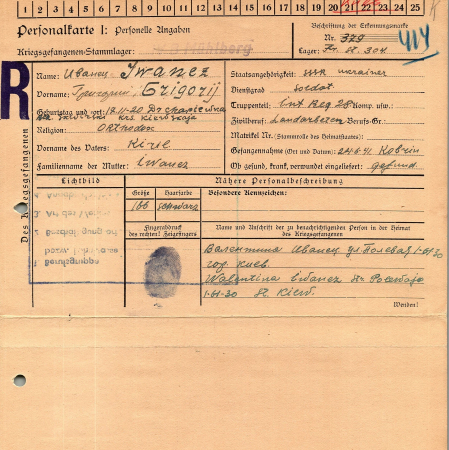 1 2 3 4 5 6 7 8 9 10 11 12 13 14 15 16 17 18 19 20 21 22 23 24 25
Personalkarte I: Personelle Angaben
Kriegsgefangenen-Stammlager:
Beschriftung der Erkennungsmarke
Nr. 379
Lager: St. 304
R
Des Kriegsgefangenen
Name: Иванец Iwanez
Vorname: Григорий, Grigorij
Geburtstag und -ort 12.11-20
Religion: Orthodox
Vorname des Vaters:
Familienname der Mutter: Iwanez
Staatsangehörigkeit:
Dienstgrad soldat
Truppenteil: Inf Reg 28 Komp. usw.:
Zivilberuf: Berufs-Gr.:
Matrikel Nr. (Stammrolle des Heimatstaates):
Gefangennahme (Ort und Datum): 24.6.41 Kobrin
Ob gesund, krank, verwundet eingeliefert: gesund.
Lichtbild
Nähere Personalbeschreibung
Größe Haarfarbe Besondere Kennzeichen:
166 schwarz
Fingerabdruck
des rechten! Zeigefingers
Name und Anschrift der zu benachrichtigenden Person in der Heimat
des Kriegsgefangenen
Валентина Иванец ул. Полевая 1-61-30
год. Киев
Walentina Iwanez Str.
1-61-30 St. Kiew.
Wenden!